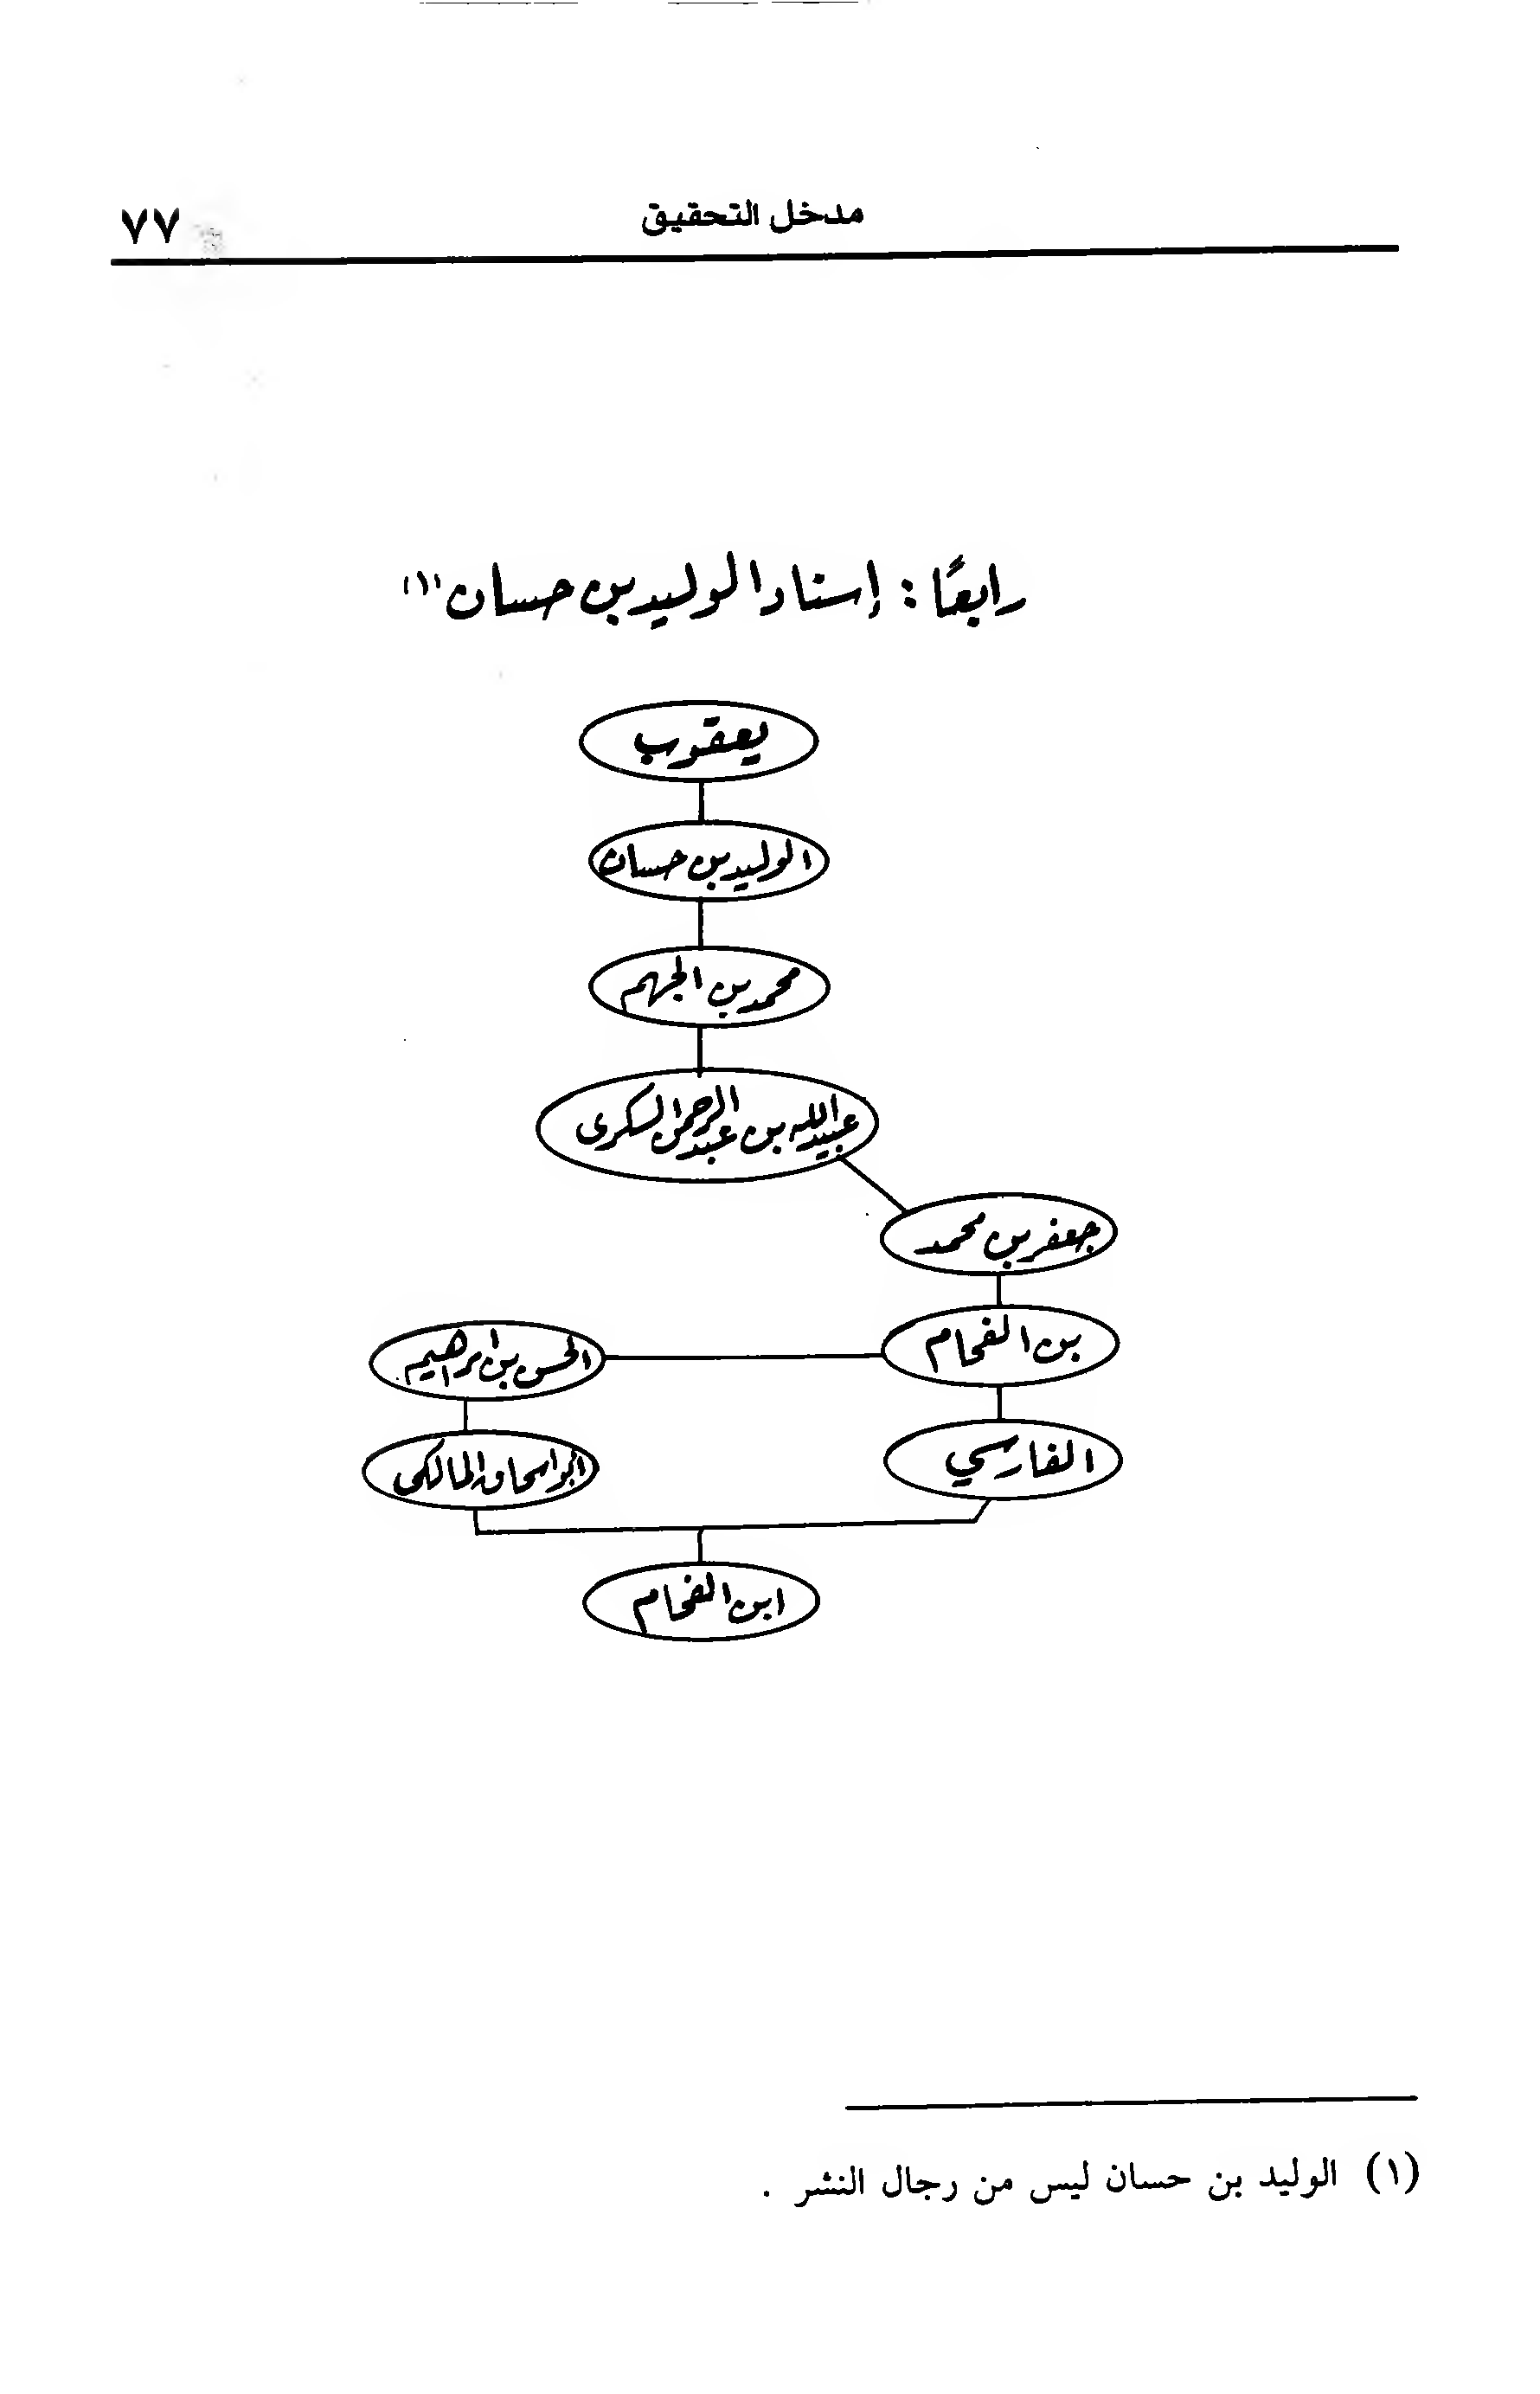 مدخل التحقيق
٧٧
رابعًا : إسناد الوليد بن حسان (١)
يعقوب
الوليد بن حسان
محمد بن الجهم
عبيدالله بن عبدالرحمن السكرى
جعفر بن محمد
بن الفحام
الحسن بن ابراهيم
الفارسي
ابو اسحاق المالكى
ابن الفحام
(١) الوليد بن حسان ليس من رجال النشر .